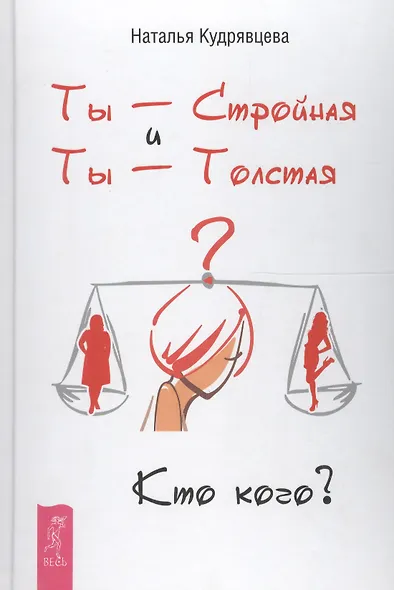 Наталья Кудрявцева
Ты — Стройная
и
Ты — Толстая
?
Кто кого?
ВЕСЬ